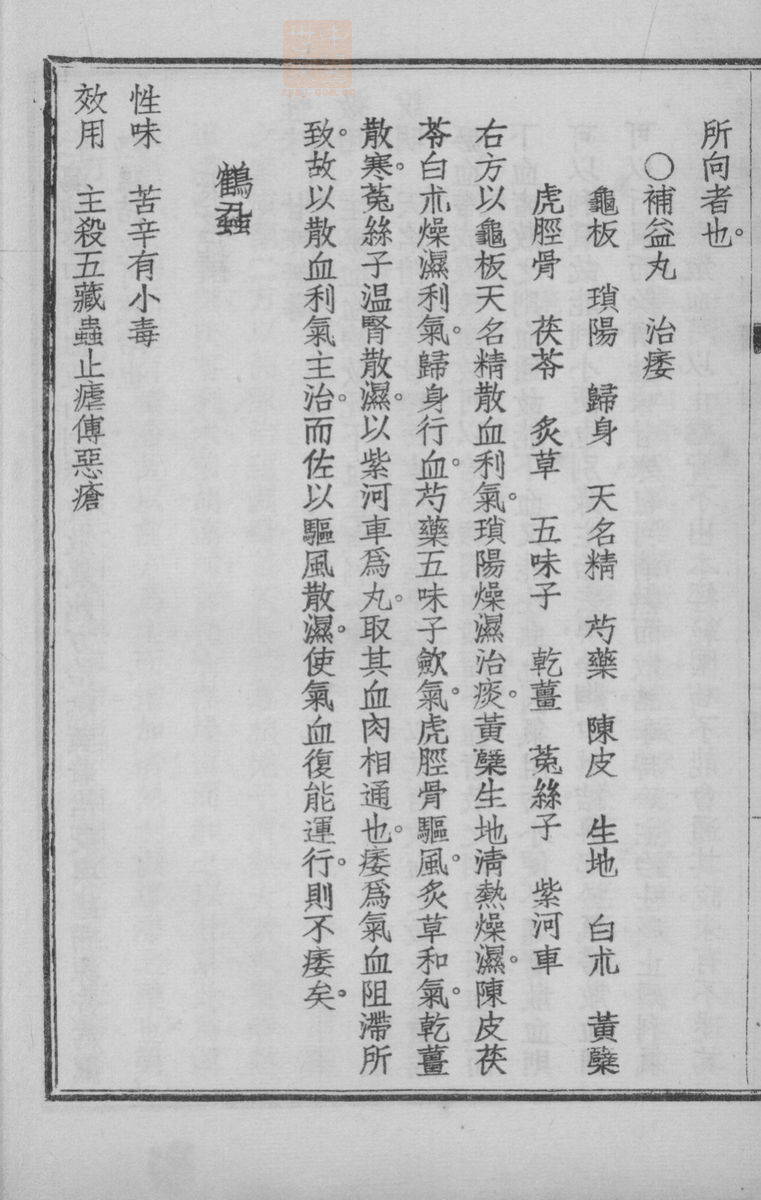 所向者也。
○補益丸　治痿
龜板　瑣陽　歸身　天名精　芍藥　陳皮　生地　白朮　黃蘗
虎脛骨　茯苓　炙草　五味子　乾薑　菟絲子　紫河車
右方以龜板天名精散血利氣。瑣陽燥濕治痰。黃蘗生地清熱燥濕。陳皮茯
苓白朮燥濕利氣。歸身行血。芍藥五味子斂氣。虎脛骨驅風。炙草和氣。乾薑
散寒。菟絲子温腎散濕。以紫河車爲丸。取其血肉相通也。痿爲氣血阻滯所
致。故以散血利氣主治。而佐以驅風散濕。使氣血復能運行。則不痿矣。
鶴蝨
性味　苦辛有小毒
效用　主殺五藏蟲止瘧傅惡瘡